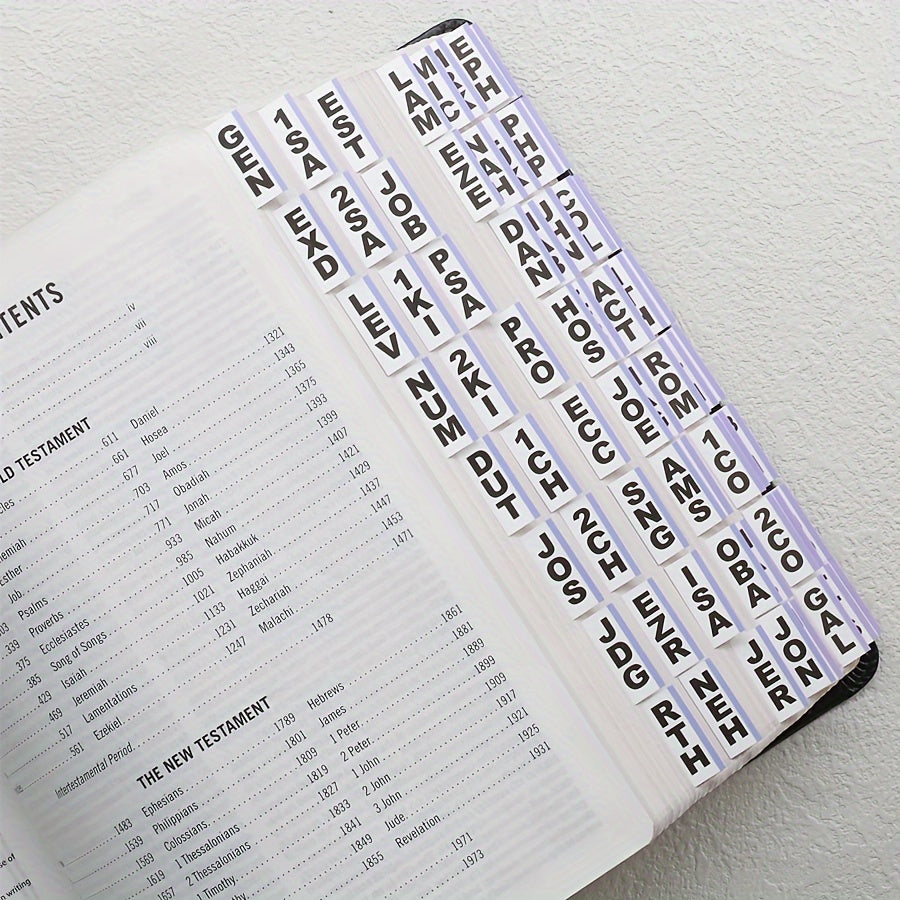 TENTS
iv
vii
viii
LD TESTAMENT
611
Daniel
1321
661
Hosea
1343
677
Joel
1365
703
Amos
1375
Job
717
Obadiah
1393
Psalms
771
Jonah
1399
Proverbs
933
Micah
1407
375
Ecclesiastes
985
Nahum
1421
385
Song of Songs
1005
Habakkuk
1429
429
Isaiah
1021
Zephaniah
1437
469
Jeremiah
1133
Haggai
1447
517
Lamentations
1231
Zechariah
1453
561
Ezekiel
1247
Malachi
1471
Intertestamental Period
1478
THE NEW TESTAMENT
1483
Ephesians
1789
Hebrews
1861
1539
Philippians
1801
James
1881
1569
Colossians
1809
1 Peter
1899
1619
1 Thessalonians
1819
2 Peter
1909
1657
2 Thessalonians
1827
1 John
1917
1 Timothy
1833
2 John
1921
1841
3 John
1925
1849
Jude
1931
1855
Revelation
1971
1973
GEN
EXD
LEV
NUM
DUT
JOS
JDG
RTH
1SA
2SA
1KI
2KI
1CH
2CH
EZR
NEH
EST
JOB
PSA
PRO
ECC
SNG
ISA
JER
LAM
EZE
DAN
HOS
JOE
AMS
OBA
JON
MIC
NAH
JHN
ACT
ROM
1CO
2CO
GAL
EPH
PHP
COL